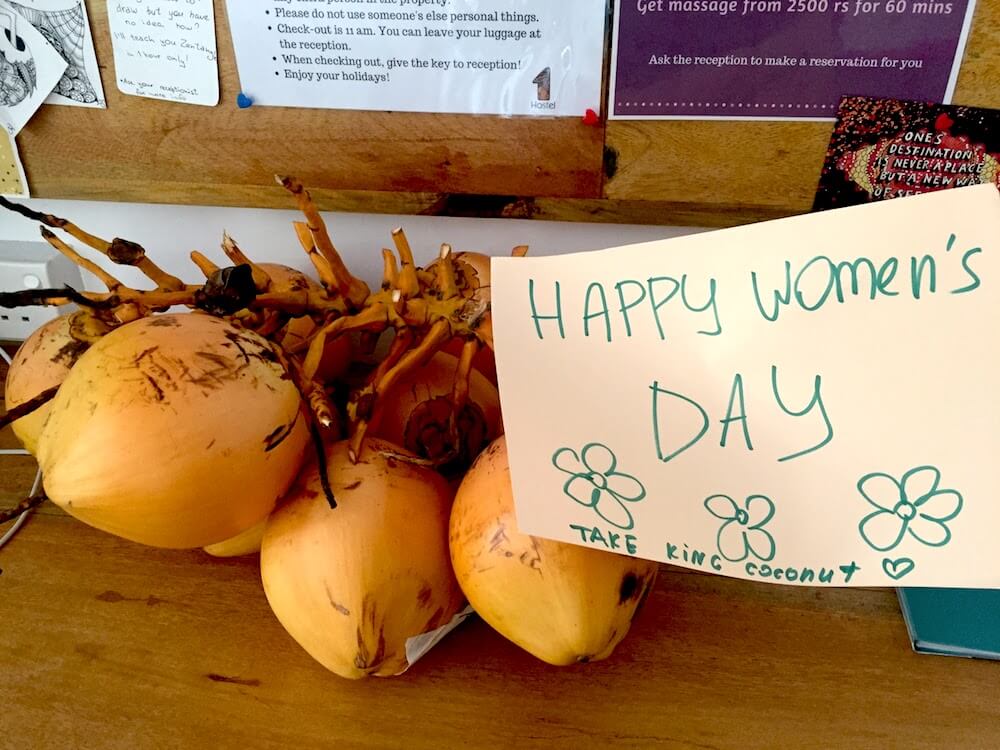 draw but you have
no idea how?
I'll teach you Zentangle
in 1 hour only!
• Ask your receptionist
for more info
any third person in the property.
• Please do not use someone's else personal things.
• Check-out is 11 am. You can leave your luggage at
the reception.
• When checking out, give the key to reception!
• Enjoy your holidays!
1
Hostel
Get massage from 2500 rs for 60 mins
Ask the reception to make a reservation for you
ONE'S
DESTINATION
IS NEVER A PLACE
BUT A NEW WAY
OF
HAPPY women's
DAY
TAKE KING coconut